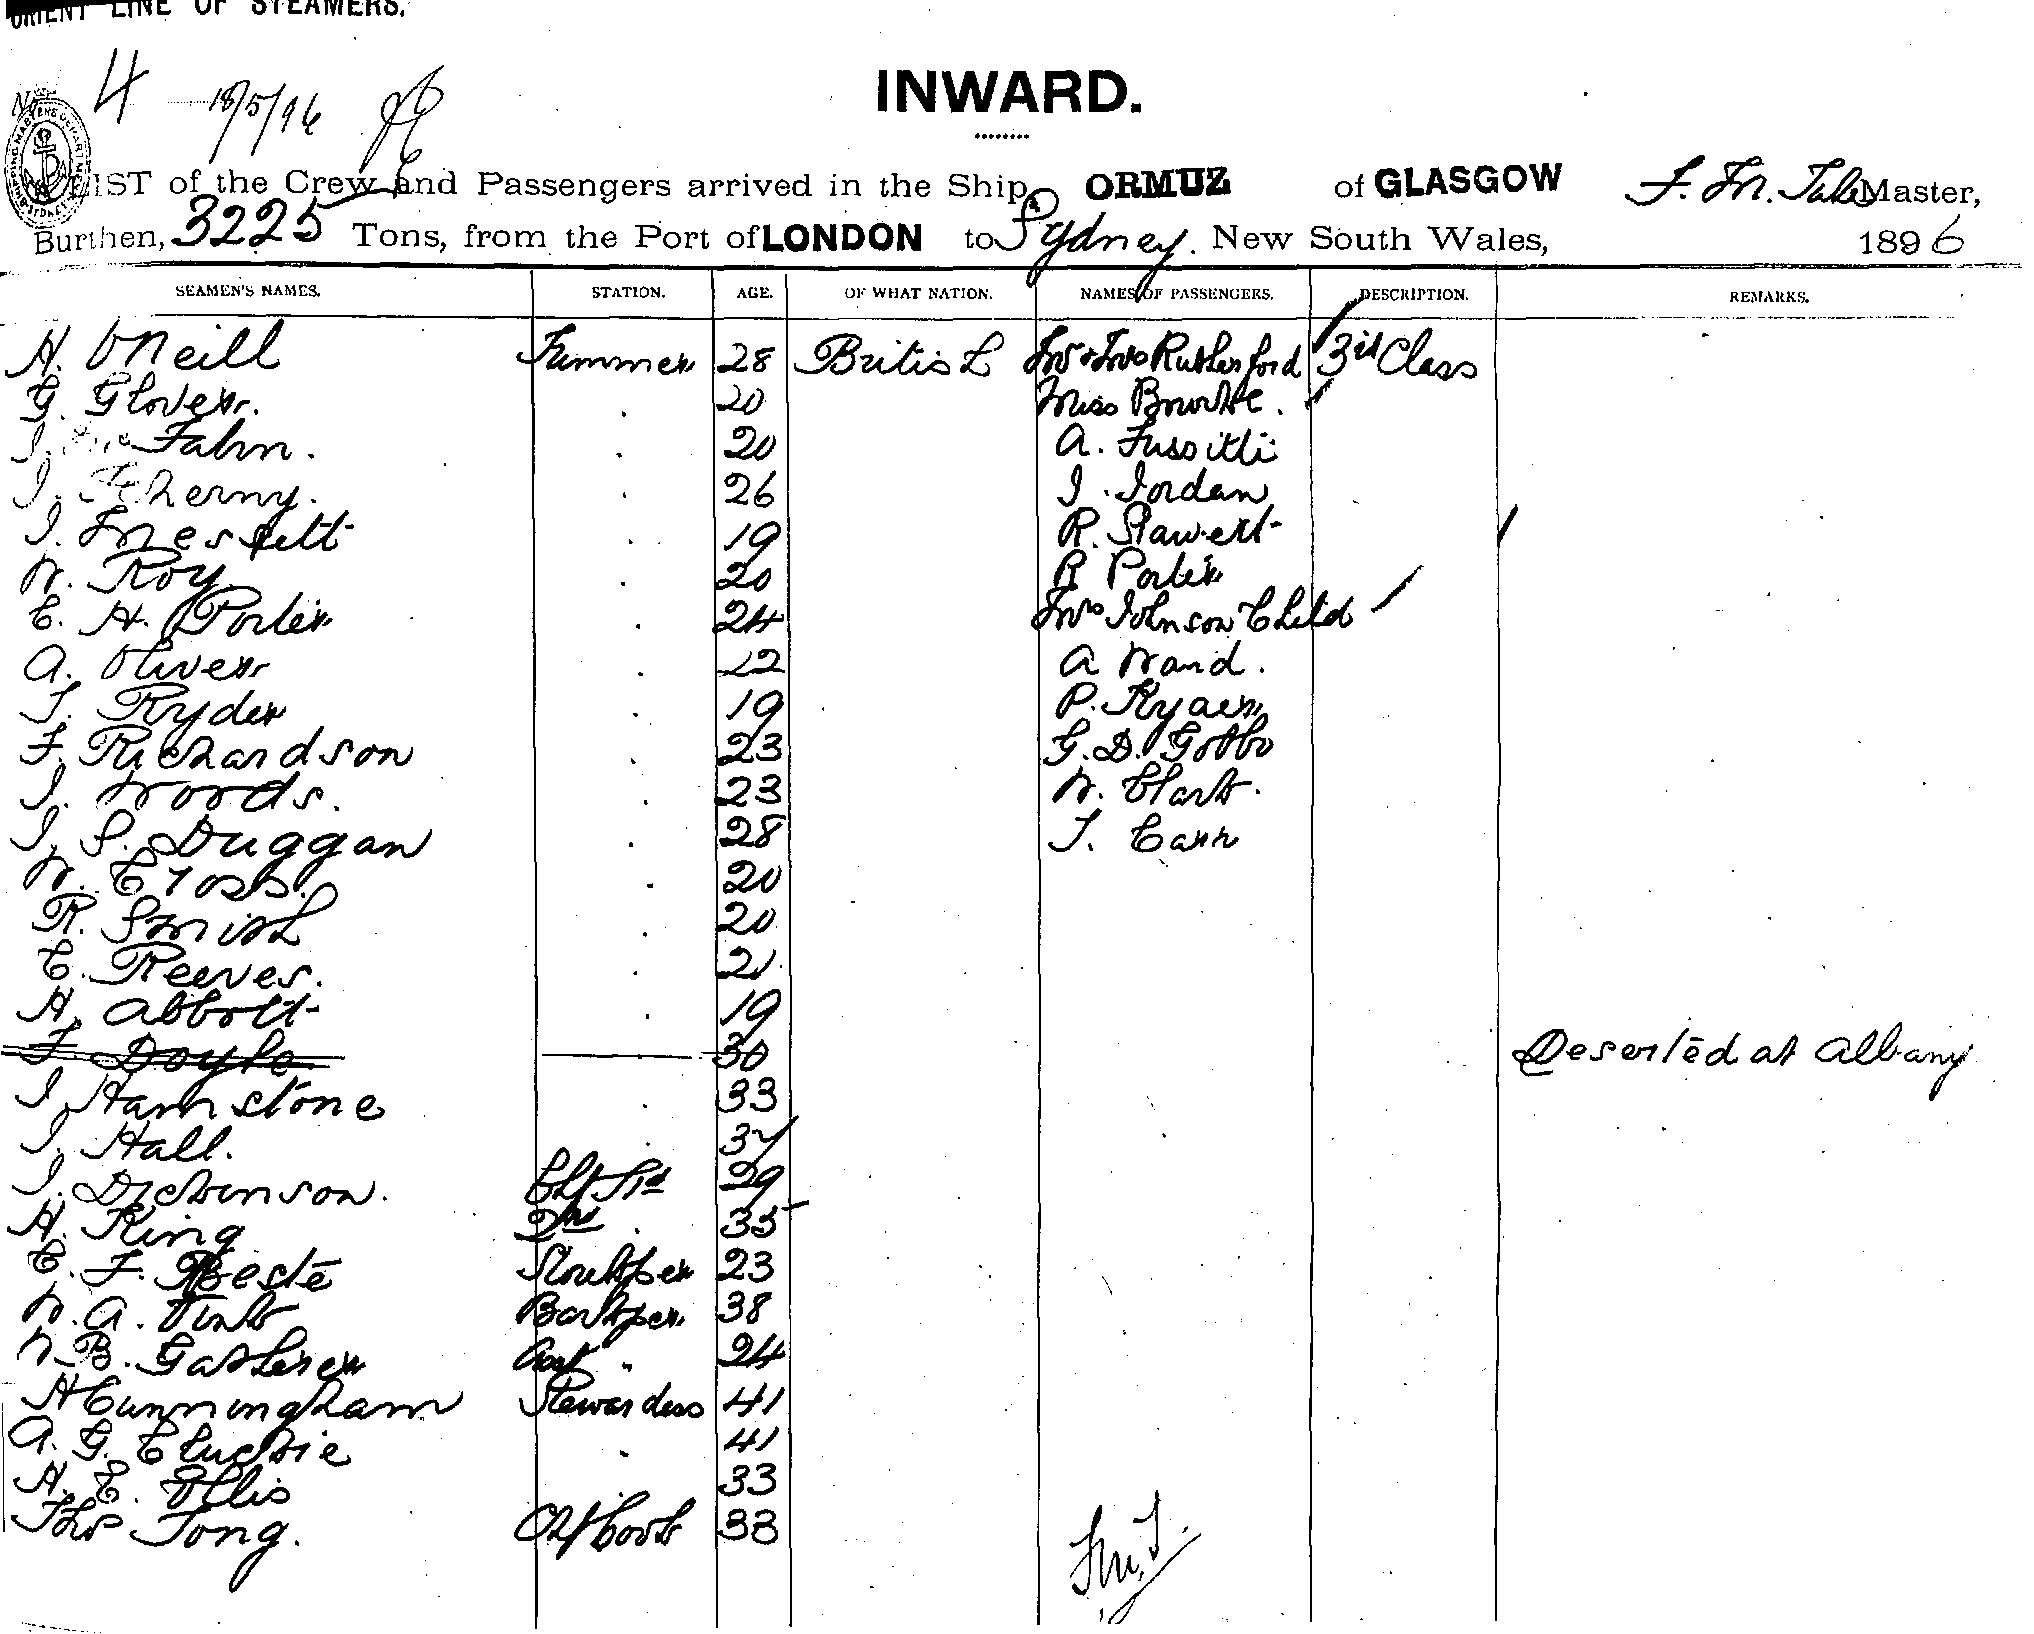 ORIENT LINE OF STEAMERS.
No. 4 18/5/96
INWARD.
LIST of the Crew and Passengers arrived in the Ship ORMUZ of GLASGOW F. M. Master,
Burthen, 3225 Tons, from the Port of LONDON to Sydney. New South Wales, 1896
SEAMEN'S NAMES. STATION. AGE. OF WHAT NATION. NAMES OF PASSENGERS. DESCRIPTION. REMARKS.
H. O'Neill 28 British Mr & Mrs Rutherford 3rd Class
G. Glover. 20 Miss Bourke.
J. Fahn. 20 A.
J. 26 J. Jordan
J. 19 R.
W. Roy 20 R Porter
E. H. Porter 24 Mrs Johnson Child
A. Oliver 22 A Ward.
J. Ryder 19 P.
F. Richardson 23 G. D. Gobbo
J. Woods. 23 W. Clark.
J. S. Duggan 28 J. Carr
W. Cross. 20
R. Smith 20
E. Reeves. 21
H. Abbott 19
F Doyle 30 Deserted at Albany
J. Hamstone 33
J. Hall. 37
J. Dickinson. 29
H. King 2nd 35
E. F. Beste Storekper 23
W. A. Barkper. 38
W. B. Gatherer Asst " 24
H Cunningham Stewardess 41
A. G. 41
H. E. Ellis 33
Thos Tong. Chf Cook 33
F.M.T.